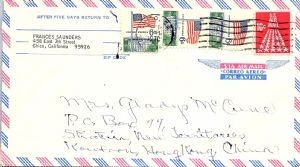 AFTER FIVE DAYS RETURN TO
FRANCES SAUNDERS
458 East 7th Street
Chico, California 95926
ZIP CODE
VIA AIR MAIL
CORREO AEREO
PAR AVION
Mrs. Gladys McCune
P.O. Box 44
New Territories
Kowloon, Hong Kong, China